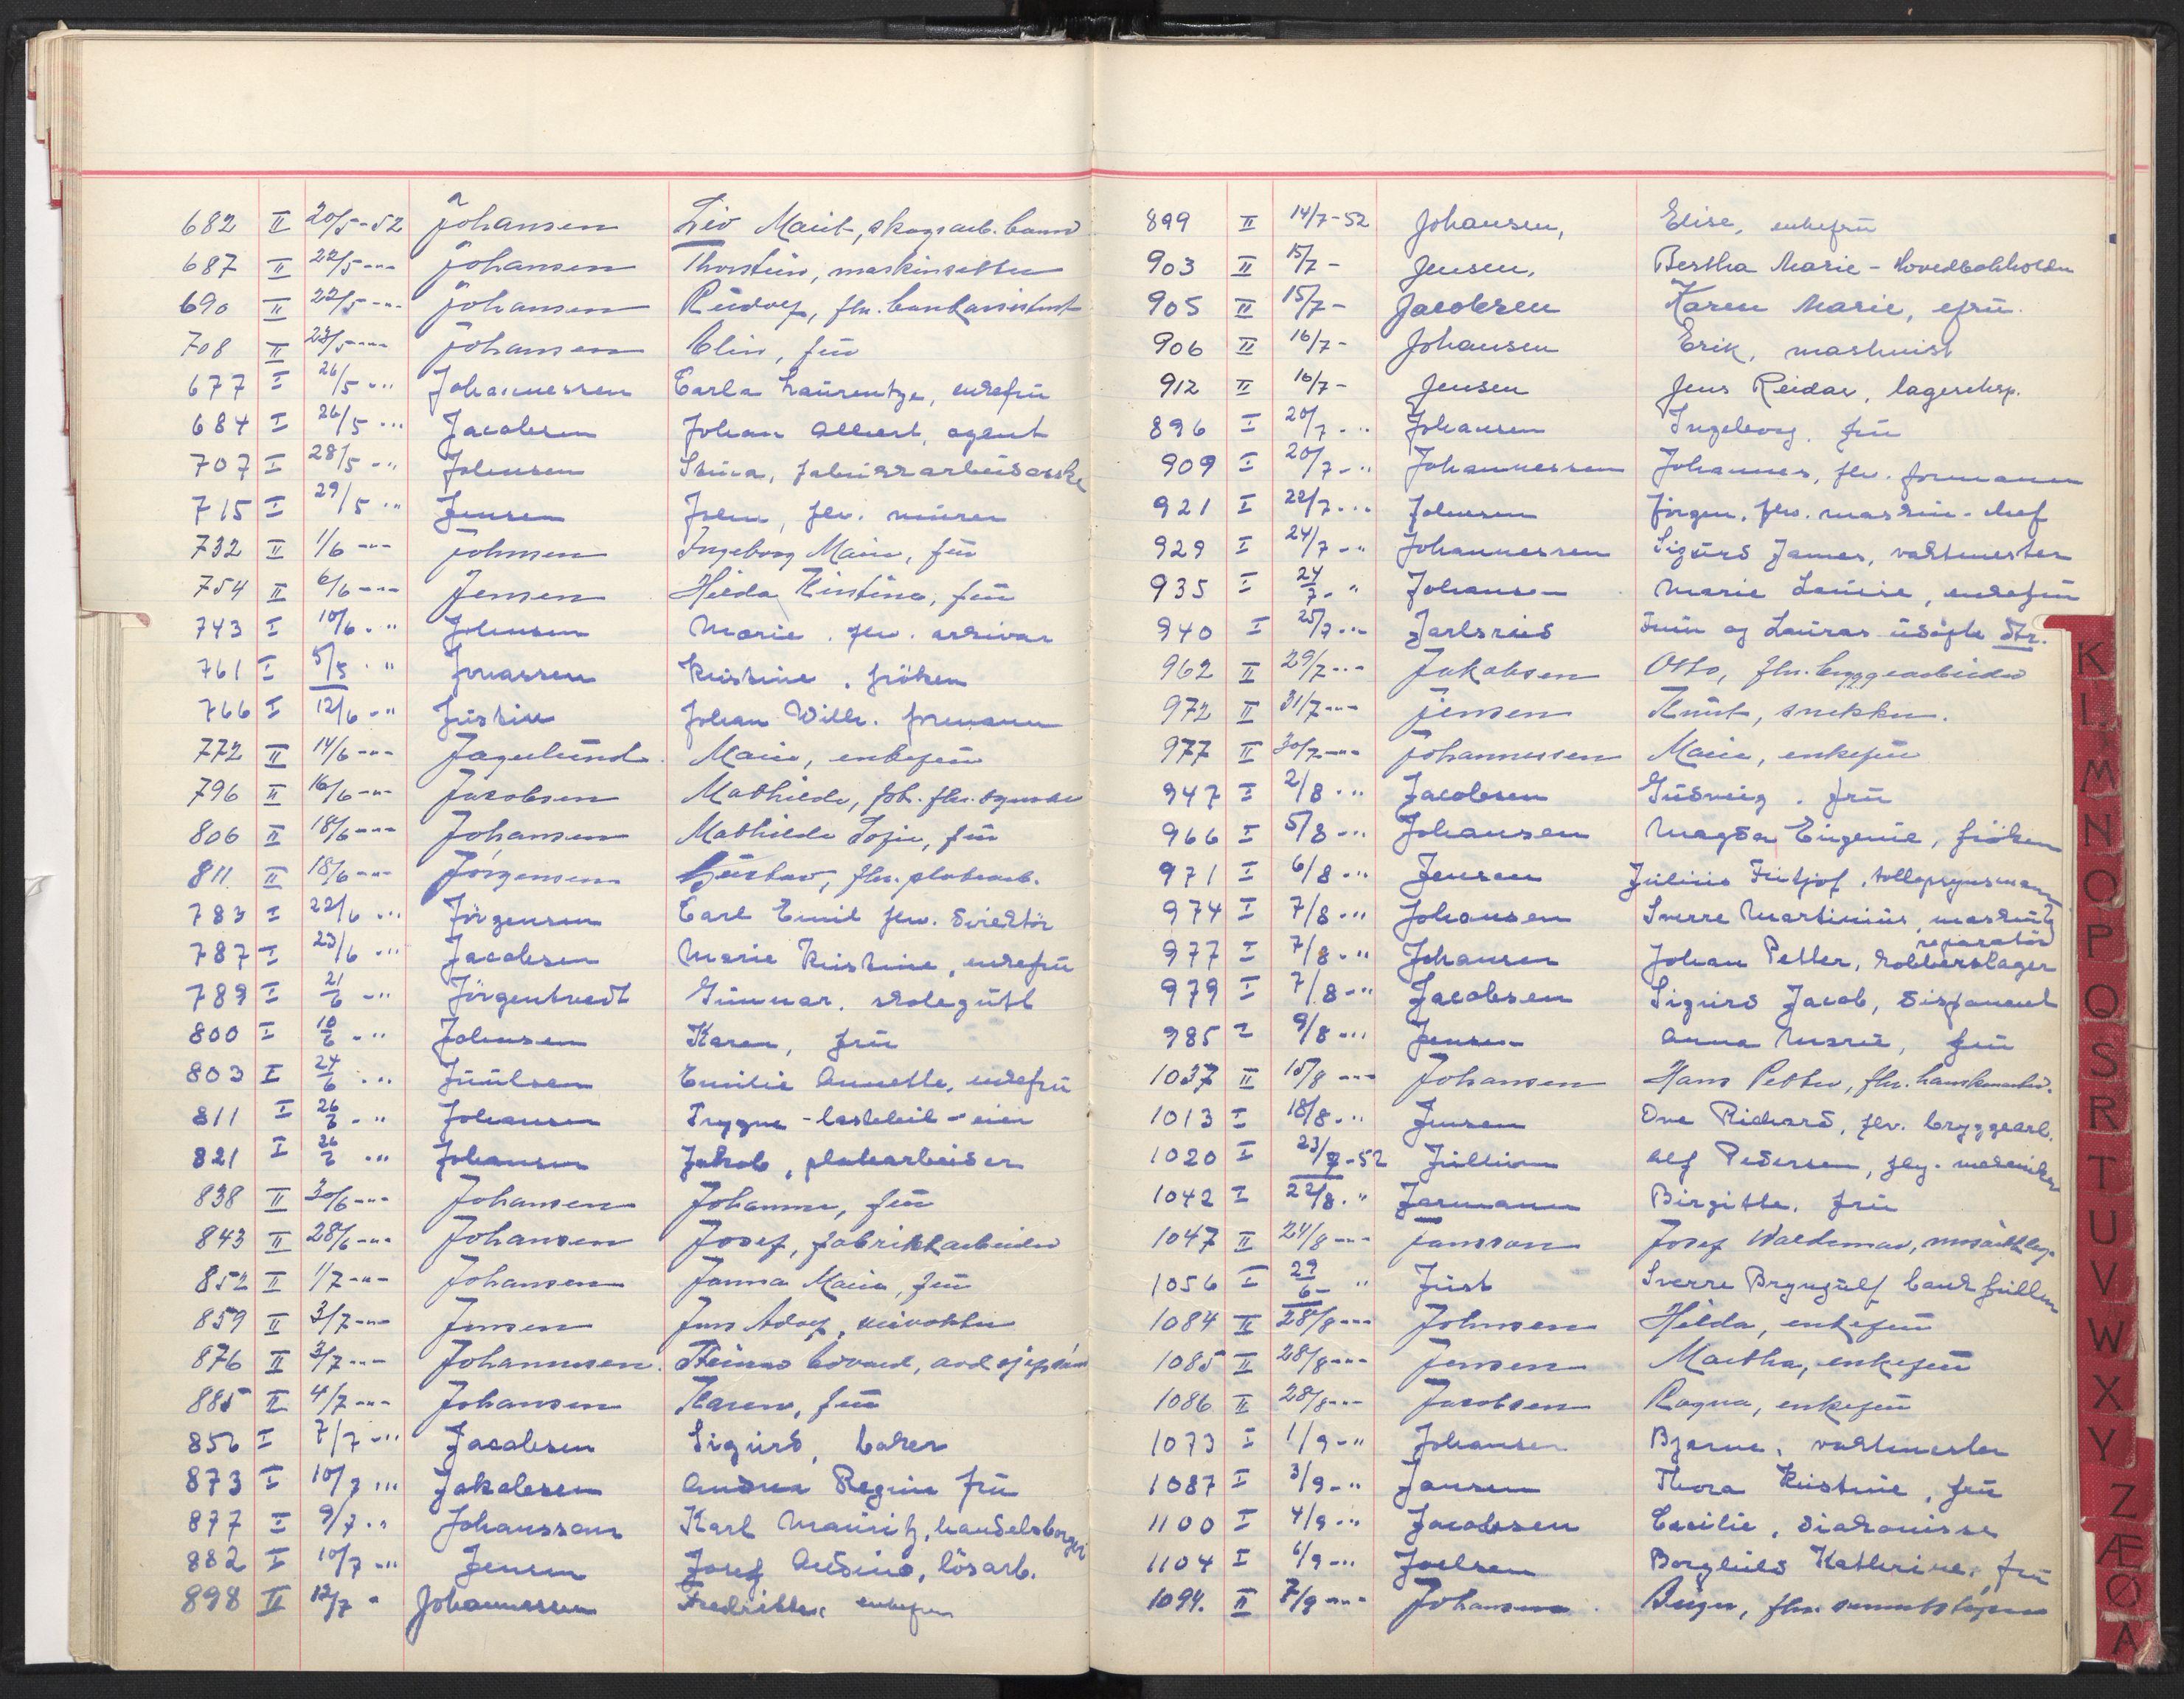 682 II 20/5-52 Johansen Liv Marit, skogsarb. barn
687 II 22/5 -"- Johansen Thorstein, maskinsetter
690 II 22/5 -"- Johansen Rudolf, fhv. bankassistent
708 II 23/5 -"- Johansen Elin, frü
677 I 26/5 -"- Johannessen Carla Laurentze, enkefrü
684 I 26/5 -"- Jacobsen Johan Albert, agent
707 I 28/5 -"- Johnsen Stina, fabrikkarbeiderske
715 I 29/5 -"- Jensen fhv. mürer
732 II 1/6 -"- Johnsen Ingeborg Marie, frü
754 II 6/6 -"- Jensen Hilda Kristine, frü
743 I 10/6 -" Johnsen Marie, fhv. arkivar
761 I 5/5 -" Jonassen Kristine, fröken
766 I 12/6 -" Johan Wilh. formann
772 II 14/6 -"- Jagerlund Marie, enkefrü
796 II 16/6 -"- Jacobsen Mathilde, frk. fhv.
806 II 18/6 -"- Johansen Mathilde Sofie, frü
811 II 18/6 -"- Jörgensen Güstav, fhv. platearb.
783 I 22/6 -"- Jörgensen Carl Emil fhv. direktör
787 I 23/6 -"- Jacobsen Marie Kristine, enkefrü
789 I 21/6 -" Jörgentvedt Günnar, skolegütt
800 I 10/6 -" Johnsen Karen, frü
803 I 24/6 -" Jüülsen Emilie Annette, enkefrü
811 I 26/6 -" Johansen Trygve - lastebil-eier
821 I 26/6 -" Johansen Jakob, platearbeider
838 II 30/6 -"- Johansen Johanne, frü
843 II 28/6 -"- Johansen Josef, fabrikkarbeider
852 II 1/7 -"- Johansen Janna Marie, frü
859 II 3/7 -"- Jensen Jens Adolf, veivokter
876 II 3/7 -"- Johannessen Edvard,
885 II 4/7 -"- Johansen Karen, frü
856 I 7/7 -" Jacobsen Sigürd, baker
873 I 10/7 -" Jakobsen Andrea Regine frü
877 I 9/7 -" Johansson Karl Mauritz, handelsborger
882 I 10/7 -" Jensen Josef lösarb.
898 II 12/7 " Johannessen Fredrikke, enkefrü
899 II 14/7-52 Johansen, Elise, enkefrü
903 II 15/7 - Jensen, Bertha Marie - Hovedbokholder
905 II 15/7 - Jacobsen Karen Marie, efrü.
906 II 16/7 - Johansen Erik, maskinist
912 II 16/7 - Jensen Jens Reidar, lagereksp.
896 I 20/7 -" Johansen Ingeborg, frü
909 I 20/7 -" Johannessen Johannes, fhv. formann
921 I 22/7 -" Johnsen Jörgen, fhv. maskin-chef
929 I 24/7 -" Johannessen Sigürd James, vaktmester
935 I 24/7 - " Johansen Marie Lovise, enkefrü
940 I 25/7 -" Jarlsrüd Irün og Lauras üdöpte dtr.
962 II 29/7 -"- Jakobsen Otto, fhv. bryggearbeider
972 II 31/7 -"- Jensen Knüt, snekker.
977 II 30/7 -"- Johannessen Marie, enkefrü
947 I 2/8 -" Jacobsen Güdveig, frü
966 I 5/8 -" Johansen Magda Eügenie, fröken
971 I 6/8 -" Jensen Jülius Fritjof, tolloppsynsmann
974 I 7/8 -" Johansen Sverre Martiniüs, maskin
reparatör
977 I 7/8 -" Johansen Johan Petter, kobberslager
979 I 7/8 -" Jacobsen Sigürd Jacob, disponent
985 I 9/8 -" Jensen Anna Marie, frü
1037 II 15/8 -"- Johansen Hans Petter, fhv. hanskemaker.
1013 I 18/8 -" Jensen Ove Richard, fhv. bryggearb.
1020 I 23/8-52 Jüllum Alf Pedersen, fly-mekaniker
1042 I 22/8 -" Jarmann Birgitte, frü
1047 II 24/8 -"- Jansson Josef Waldemar,
1056 I 29/6 - " Jüst Sverre Bryngülf bankfüllm
1084 II 28/8 -"- Johnsen Hilda, enkefrü
1085 II 28/8 -"- Jensen Martha, enkefrü
1086 II 28/8 -"- Jacobsen Ragna, enkefrü
1073 I 1/9 -" Johansen Bjarne, vaktmester
1087 I 3/9 -" Jansen Thora Kristine, frü
1100 I 4/9 -" Jacobsen Cecilie, diakonisse
1104 I 6/9 -" Joelsen Borghild Kathrine, frü
1094. II 7/9 -"- Johansen Birger, fhv.
K
L
M
N
O
P
Q
S
R
T
U
V
W
X
Y
Z
Æ
Ø
A